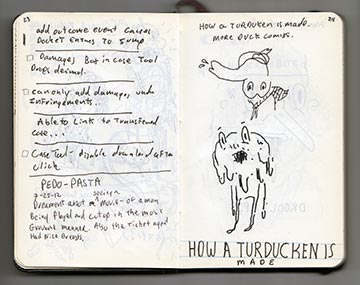 23
add outcome event causes
Docket Entries To Jump
Damages But in case Tool
Drops decimal.
can only add damages unde
Infringements..
Able to Link to Transfered
case...
Case Tool - disable download after
click
PEDO-PASTA
7-25-12
Dreament about a movie - of a man
Being Played and cut up in the most
Gruesome manner. Also the ticket agent
Had Nice Breasts.
24
HOW A TURDUCKEN IS MADE.
MORE DUCK COMICS.
HOW A TURDUCKEN IS
MADE